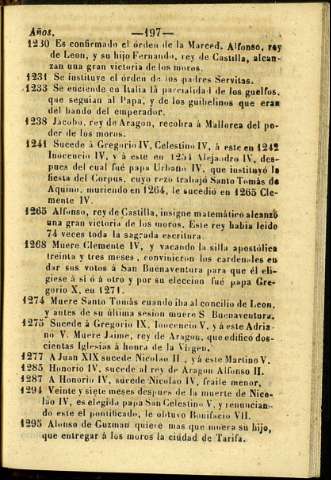 Años, —197—
1230 Es confirmado el órden de la Marced. Alfonso, rey
de Leon, y su hijo Fernando, rey de Castilla, alcan-
zan una gran victoria de los moros.
1231 Se instituye el órden de los padres Servitas.
1233 Se enciende en Italia la parcialidad de los guelfos,
que seguian al Papa, y de los guibelinos que eran
del bando del emperador.
1238 Jacobo, rey de Aragon, recobra á Mallorca del po-
der de los moros.
1241 Sucede á Gregorio IV, Celestino IV, á este en 1242
Inocencio IV, y á este en 1254 Alejandro IV, des-
pues del cual fué papa Urbano IV, que instituyó la
fiesta del Corpus, cuyo rezo trabajó Santo Tomás de
Aquino, muriendo en 1264, le sucedió en 1265 Cle-
mente IV.
1265 Alfonso, rey de Castilla, insigne matemático alcanzó
una gran victoria de los moros. Este rey habia leido
74 veces toda la sagrada escritura.
1268 Muere Clemente IV, y vacando la silla apostólica
treinta y tres meses, convinieron los cardenales en
dar sus votos á San Buenaventura para que él eli-
giese á sí ó á otro y por su eleccion fué papa Gre-
gorio X, en 1271.
1274 Muere Santo Tomás cuando iba al concilio de Leon,
y antes de su última sesion muere S Buenaventura.
1275 Sucede á Gregorio IX, Inocencio V, y á este Adria-
no V. Muere Jaime, rey de Aragon, que edificó dos-
cientas Iglesias á honra de la Virgen.
1277 A Juan XIX sucede Nicolao II, y á este Martino V.
1285 Honorio IV, sucede al rey de Aragon Alfonso II.
1287 A Honorio IV, sucede Nicolao IV, fraile menor,
1294 Veinte y siete meses despues de la muerte de Nico-
lao IV, es elegida papa San Celestino V, y renuncian-
do este el pontificado, le obtuvo Bonifacio VII.
1295 Alonso de Guzman quiere mas que muera su hijo,
que entregar á los moros la ciudad de Tarifa.